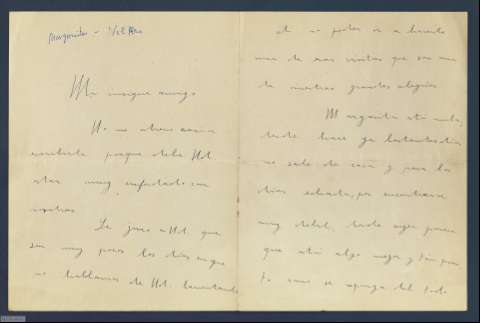 Margarita - Valle
Mi insigne amigo
No me atrevo casi a
escribirle porque debe Vd.
estar muy enfadado con
nosotros.
Le juro a Vd. que
son muy pocos los días en que
no hablamos de Vd. lamentando
el no poder ir a hacerle
una de esas visitas que son una
de nuestras grandes alegrías.
Margarita está mala,
desde hace ya bastantes días
no sale de casa y pasa los
días echada, por encontrarse
muy débil, desde ayer parece
que está algo mejor y